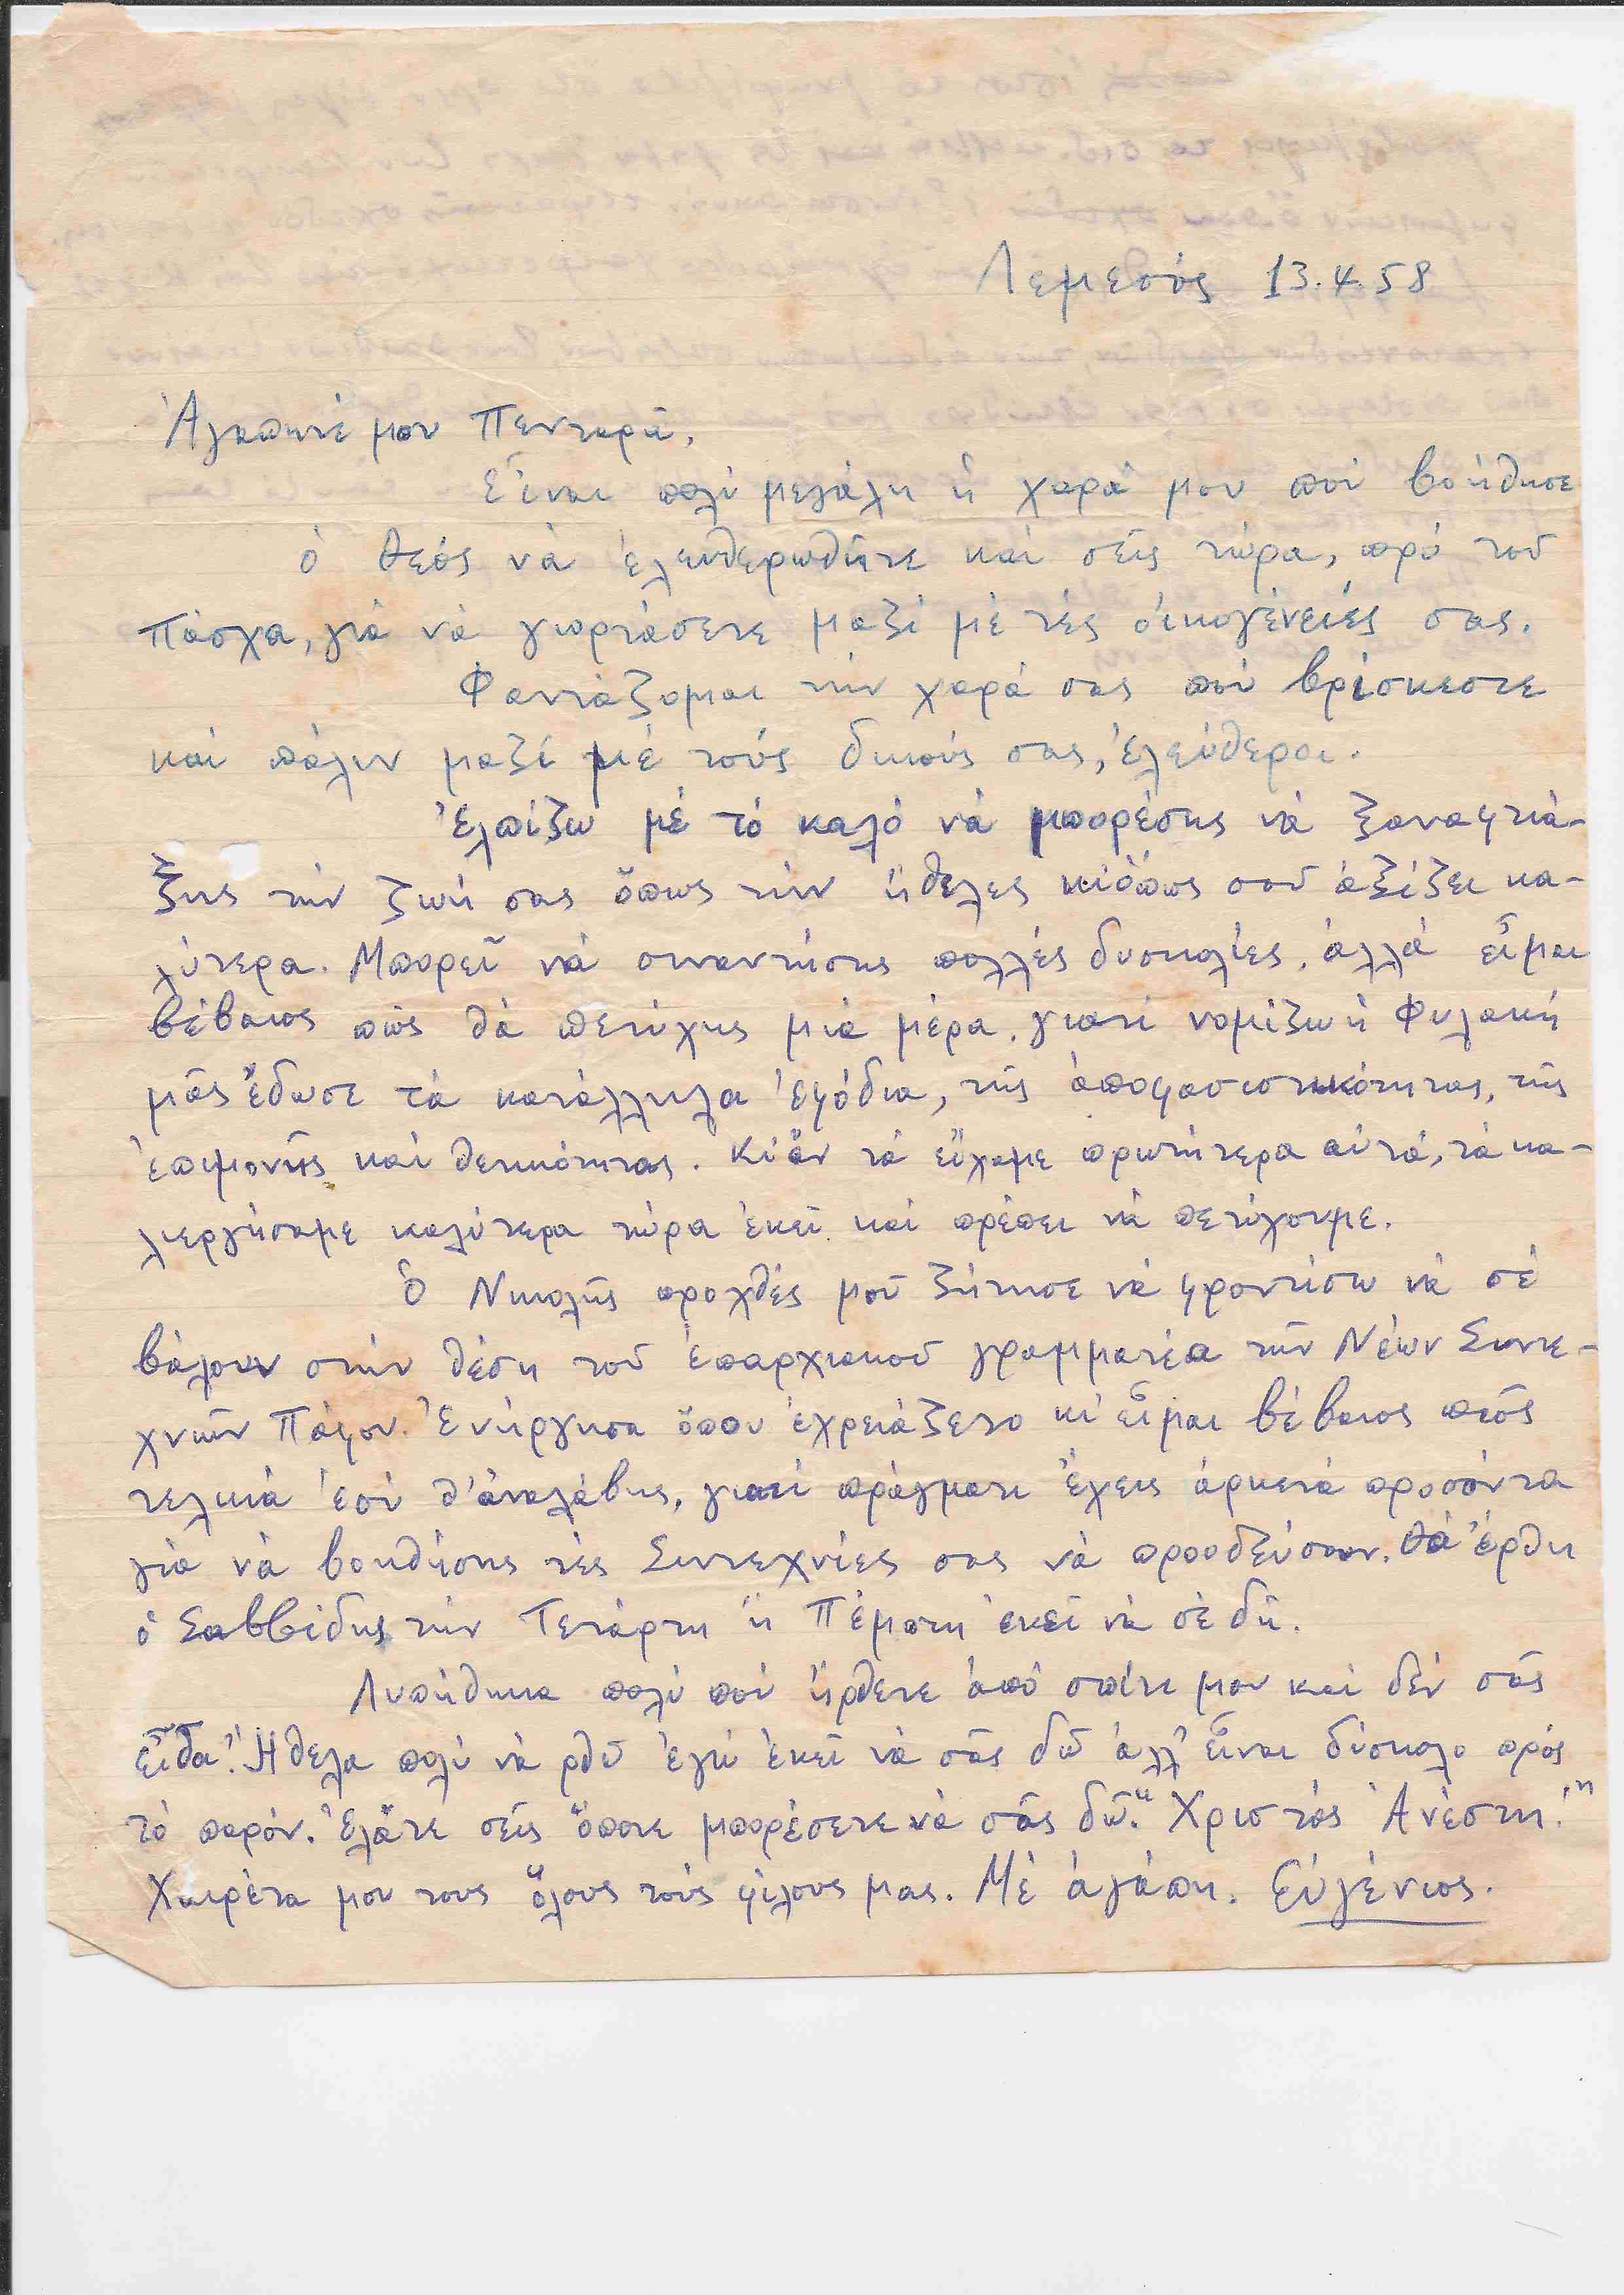 Λεμεσός 13.4.58
Ἀγαπητέ μου Πενταρᾶ,
Εἶναι πολύ μεγάλη ἡ χαρά μου πού βοήθησε
ὁ Θεός νά ἐλευθερωθῆτε καί σεῖς τώρα, πρό τοῦ
Πάσχα, γιά νά γιορτάσετε μαζί μέ τές οἰκογένειές σας.
Φαντάζομαι τήν χαρά σας πού βρίσκεστε
καί πάλιν μαζί μέ τούς δικούς σας, ἐλεύθεροι.
Ἐλπίζω μέ τό καλό νά μπορέσης νά ξαναφτιά-
ξης τήν ζωή σας ὅπως τήν ἤθελες κι ὅπως σοῦ ἀξίζει κα-
λύτερα. Μπορεῖ νά συναντήσης πολλές δυσκολίες, ἀλλά εἶμαι
βέβαιος πώς θά πετύχης μιά μέρα, γιατί νομίζω ἡ Φυλακή
μᾶς ἔδωσε τά κατάλληλα ἐφόδια, τῆς ἀποφασιστικότητας, τῆς
ἐπιμονῆς καί θετικότητας. Κι ἄν τά εἴχαμε πρωτήτερα αὐτά, τά κα-
λιεργήσαμε καλύτερα τώρα ἐκεῖ καί πρέπει νά πετύχουμε.
Ὁ Νικολῆς προχθές μοῦ ζήτησε νά φροντίσω νά σέ
βάλουν στήν θέση τοῦ ἐπαρχιακοῦ γραμματέα τῶν Νέων Συντε-
χνιῶν Πάφου. Ἐνήργησα ὅπου ἐχρειάζετο κι εἶμαι βέβαιος πῶς
τελικά ἐσύ θ' ἀναλάβης, γιατί πράγματι ἔχεις ἀρκετά προσόντα
γιά νά βοηθήσης τές Συντεχνίες σας νά προοδεύσουν. Θά ἔρθη
ὁ Σαββίδης τήν Τετάρτη ἤ Πέμπτη ἐκεῖ νά σέ δῆ.
Λυπήθηκα πολύ πού ἤρθετε ἀπό σπίτι μου καί δέν σᾶς
εἶδα. Ἤθελα πολύ νά ρθῶ ἐγώ ἐκεῖ νά σᾶς δῶ ἀλλ' εἶναι δύσκολο πρός
τό παρόν. Ἐλᾶτε σεῖς ὅποτε μπορέσετε νά σᾶς δῶ. "Χριστός Ἀνέστη!"
Χαιρέτα μου τους ὅλους τούς φίλους μας. Μέ ἀγάπη. Εὐγένιος.